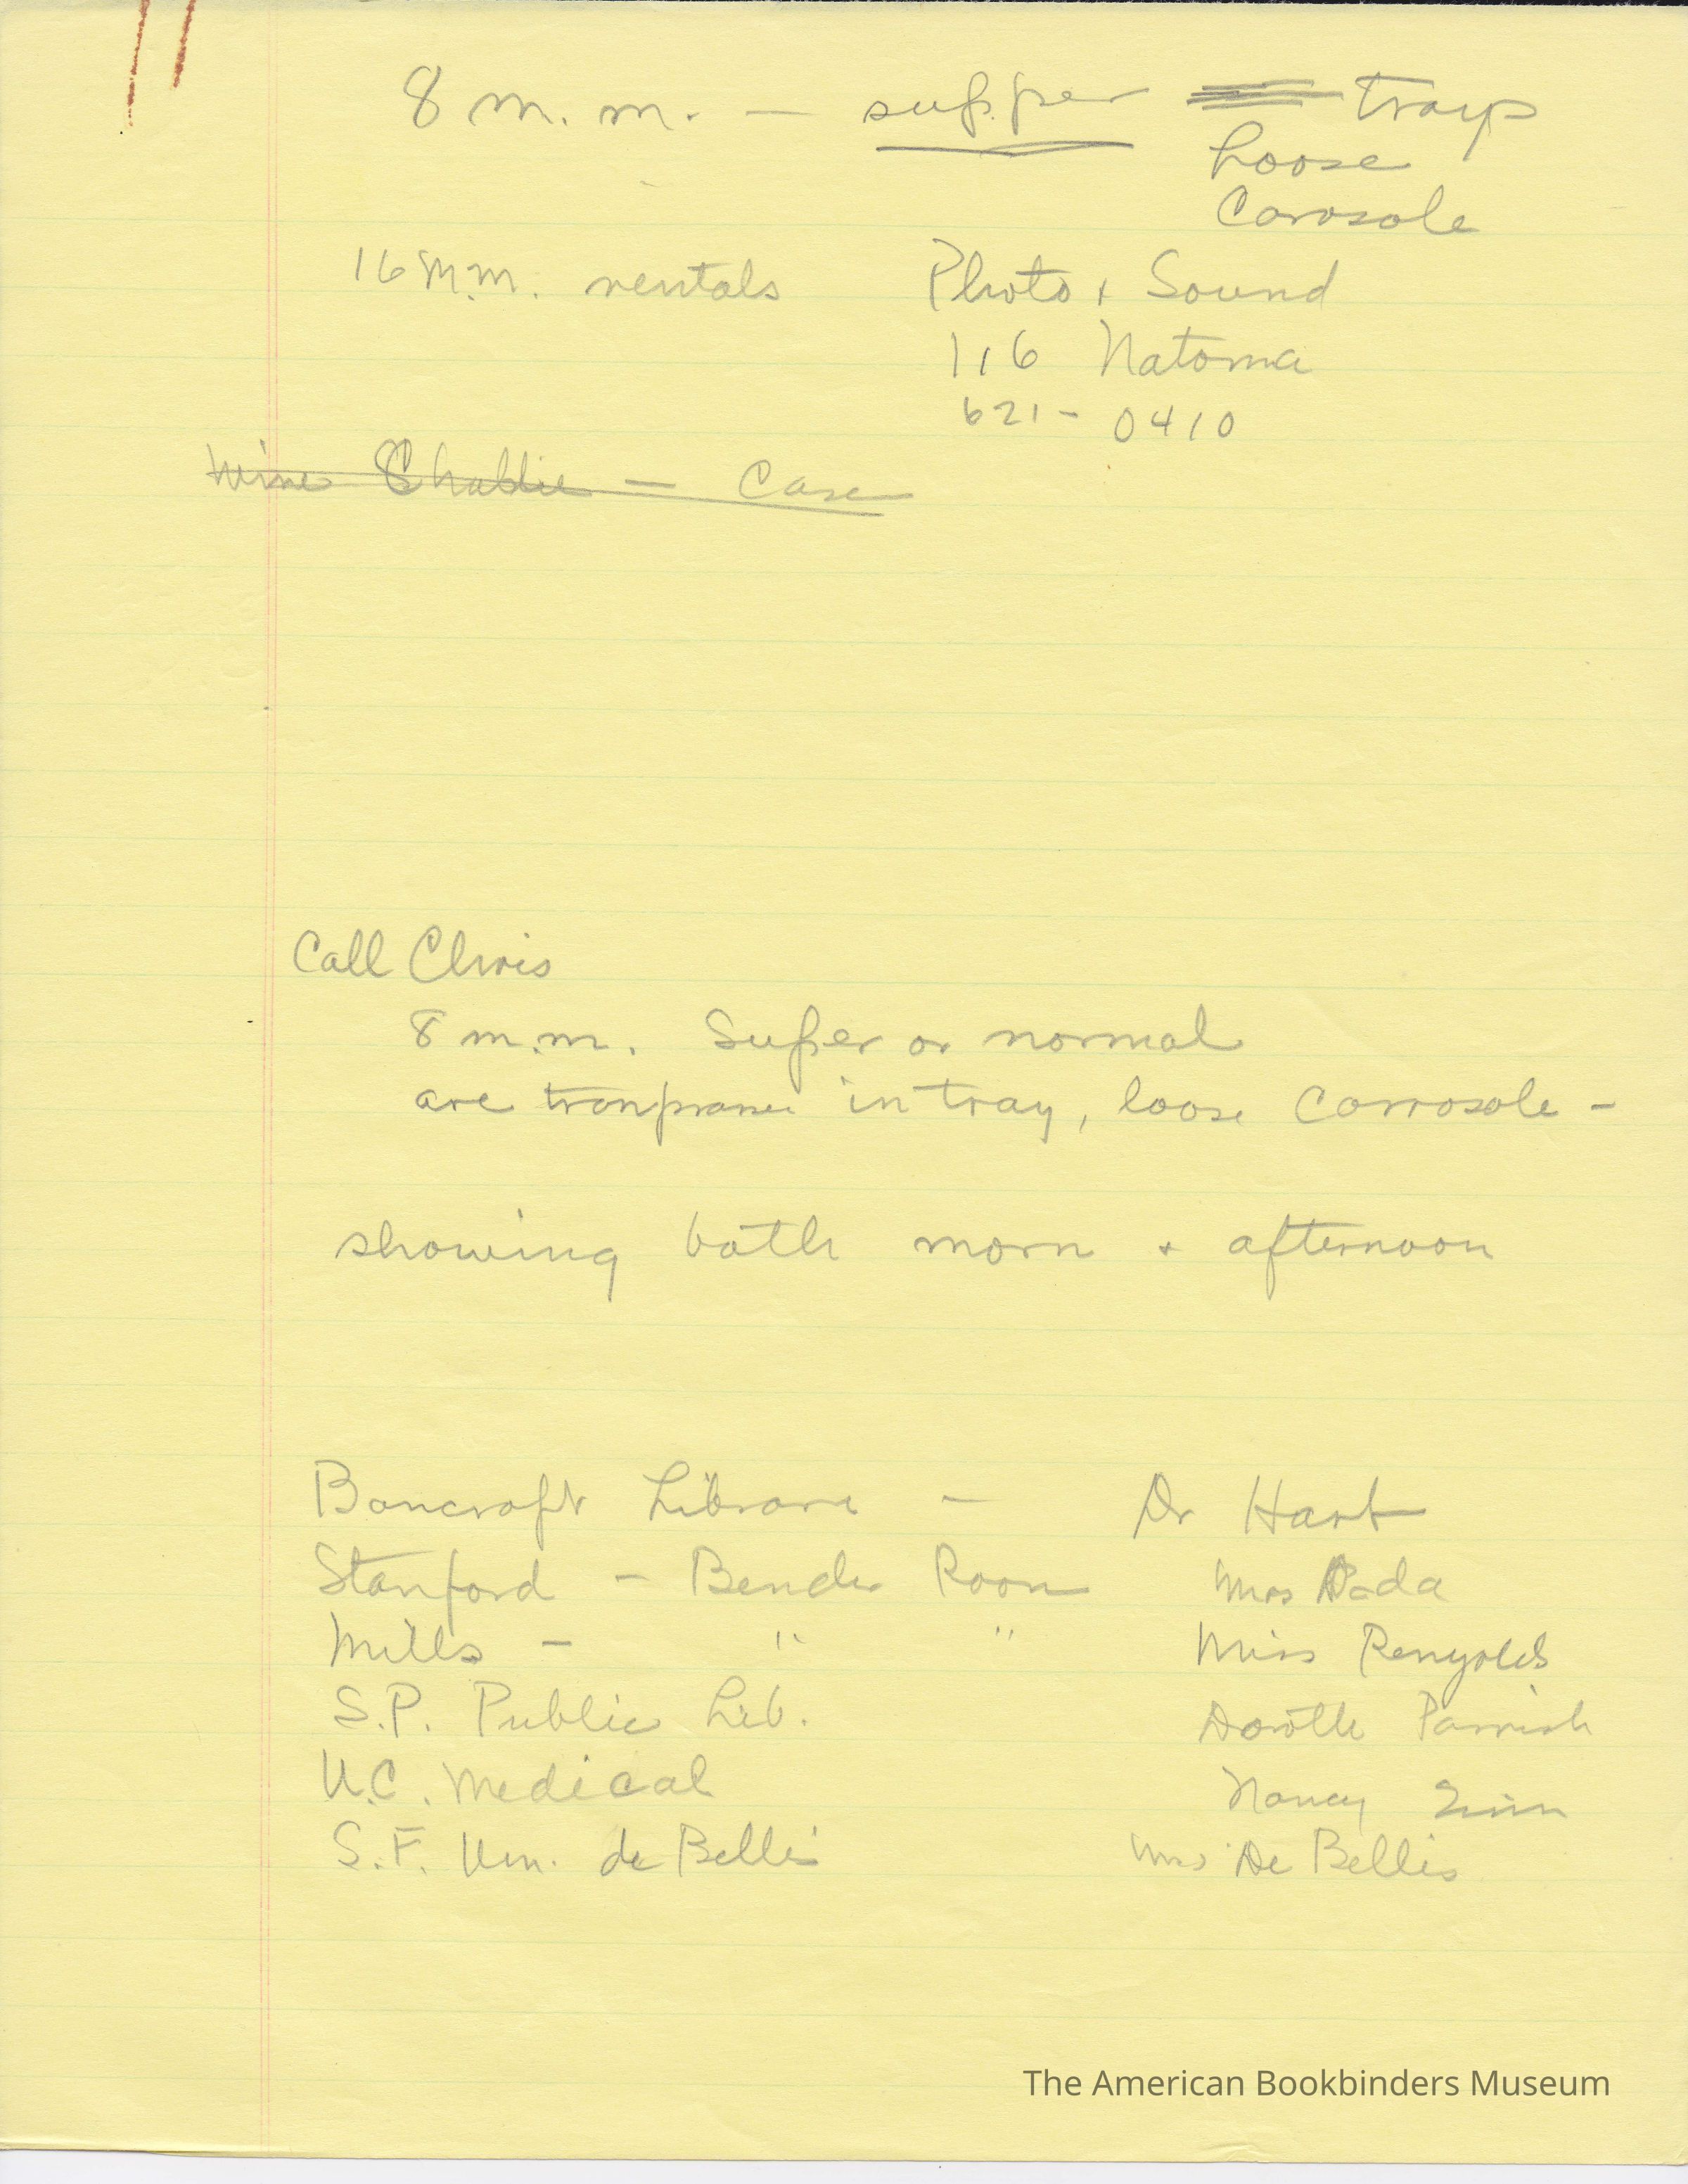 8 m.m. — supper trays
Loose
Carosole
16 m.m. rentals Photo + Sound
116 Natoma
621-0410
Wine Chablie — Case
Call Chris
8 m.m. Super or normal
are in tray, loose Carrosole -
showing both morn + afternoon
Bancroft Library — Dr Hart
Stanford - Bender Room Mrs Dada
Mills - " " Miss Renyolds
S.P. Public Lib. Parrish
U.C. Medical Nancy Zinn
S.F. Un. de Bellis Mrs De Bellis
The American Bookbinders Museum